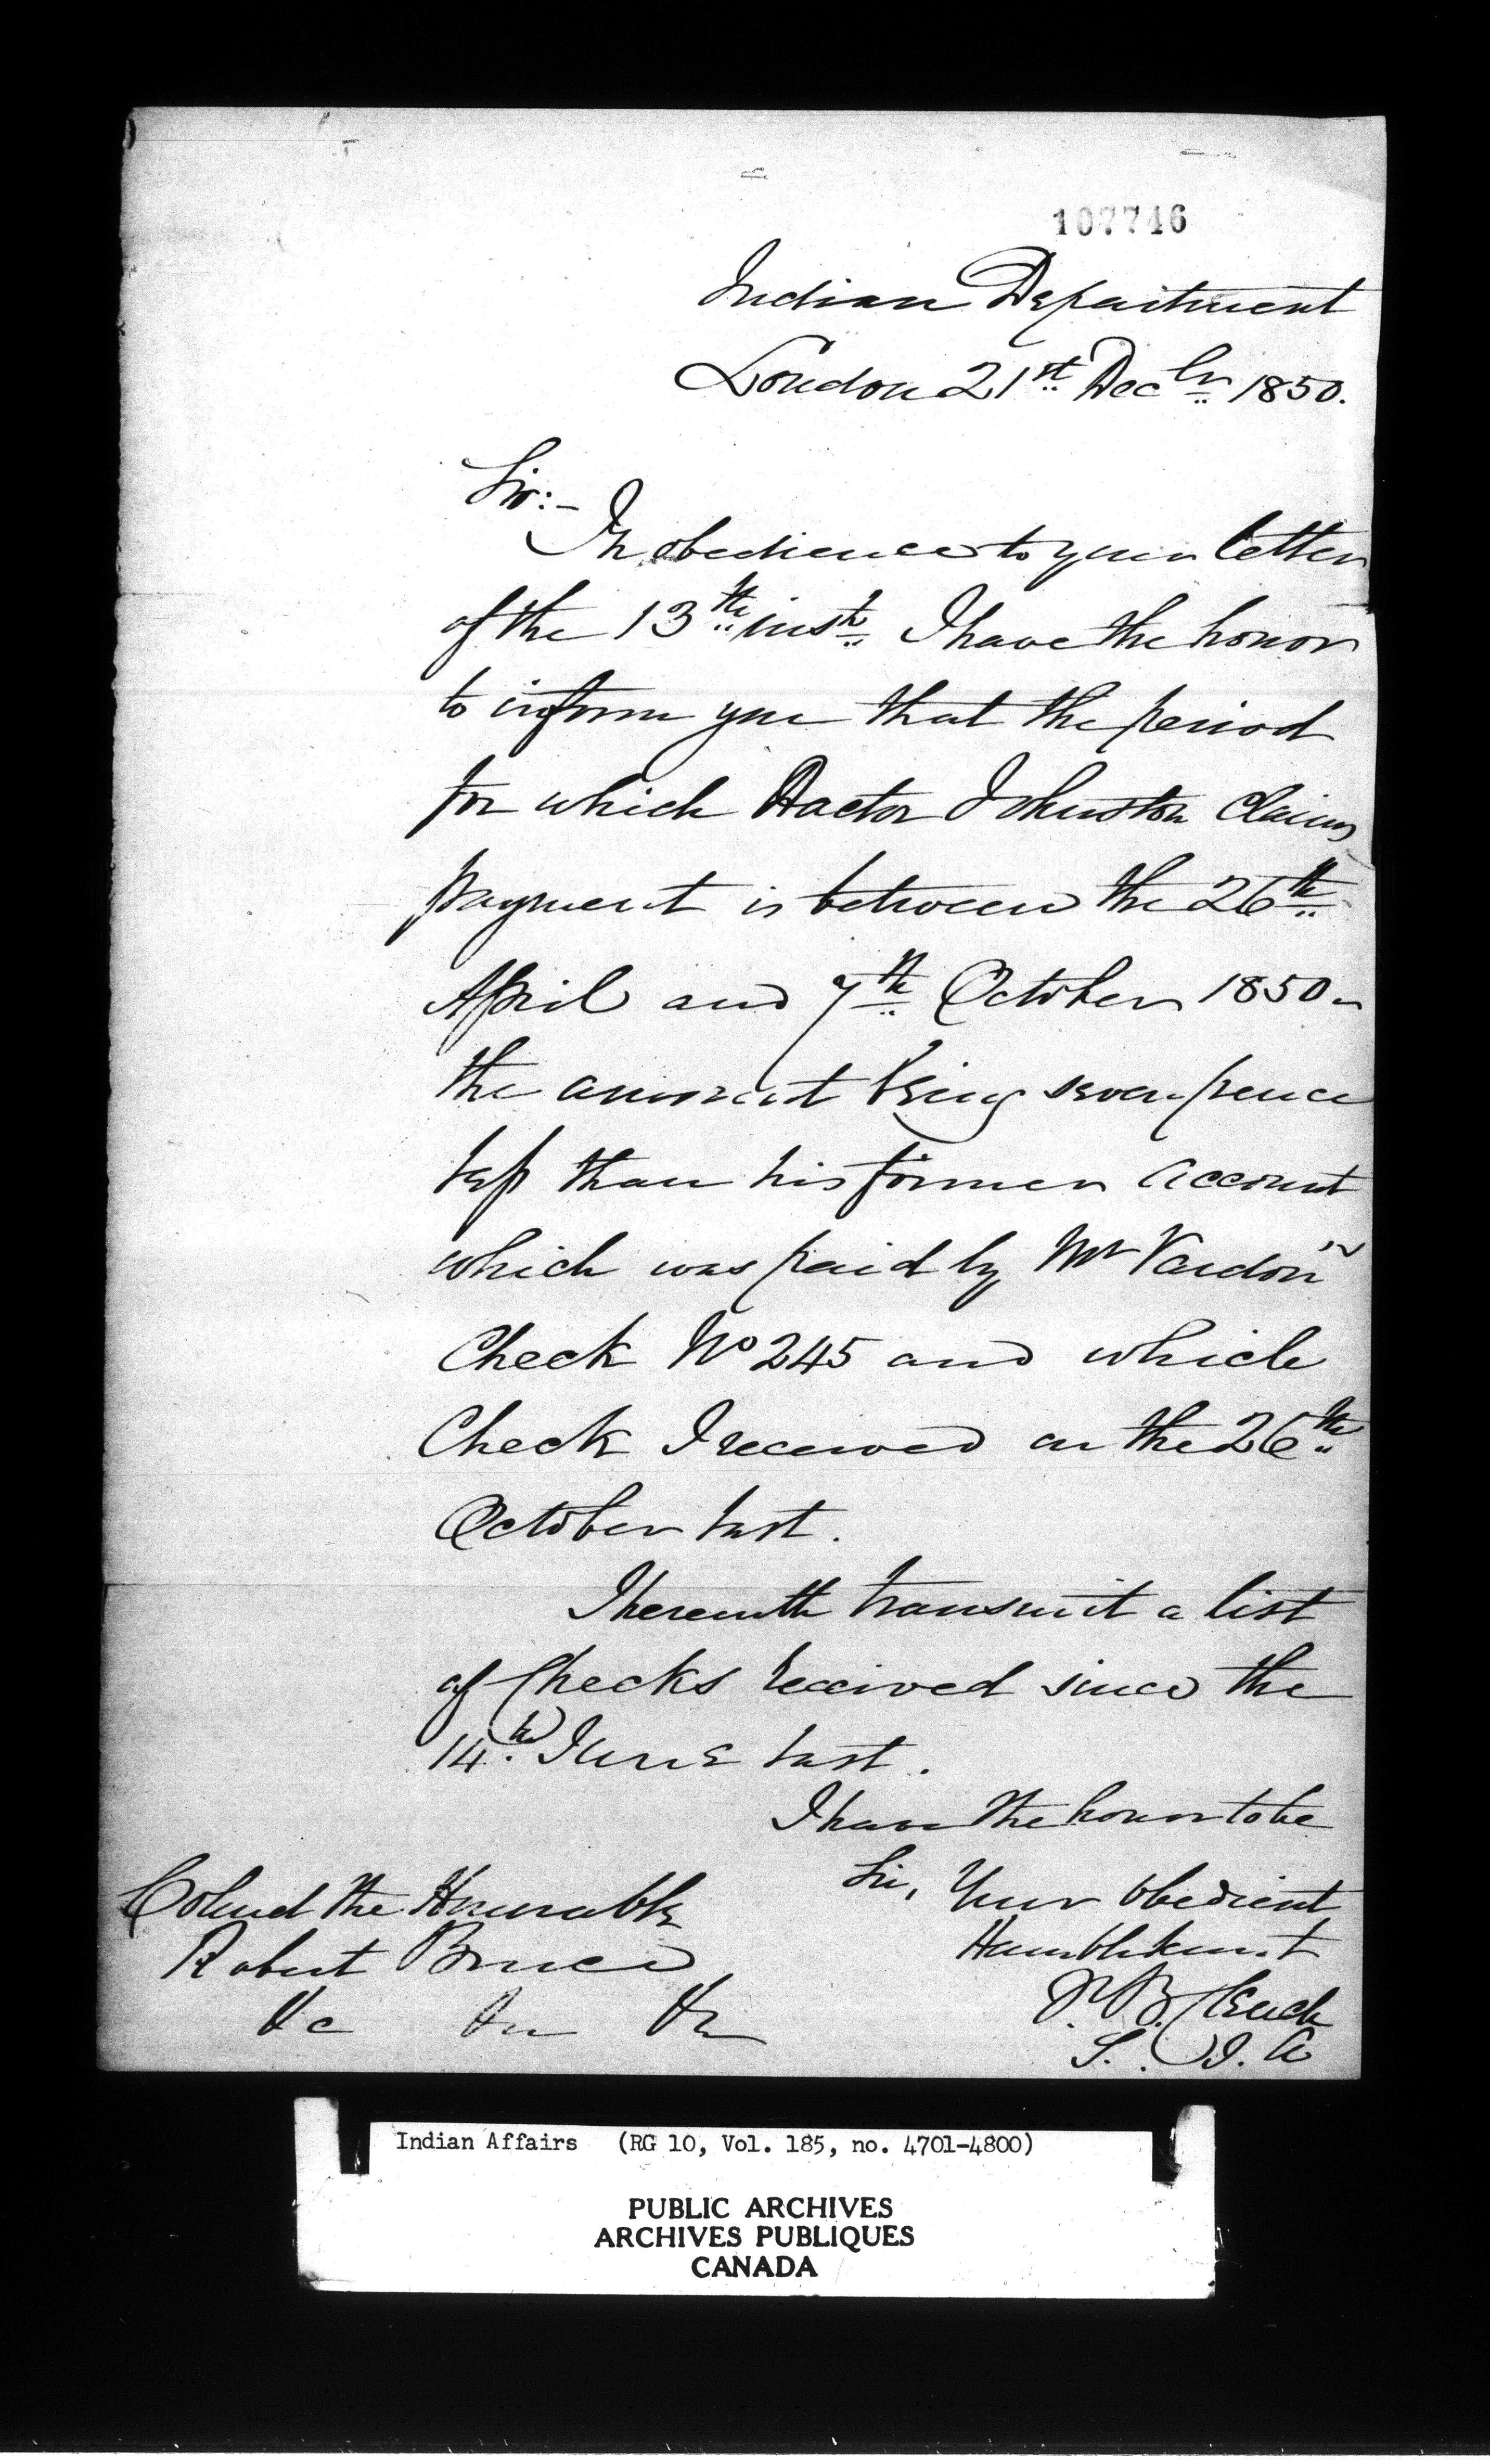 107746
Indian Department
London 21st Decbr 1850.
Sir:-
In obedience to your letter
of the 13th inst I have the honor
to inform you that the period
for which Doctor Johnston claims
payment is between the 26th
April and 7th October 1850 -
the amount being seven pence
less than his former account
which was paid by Mr Vardon's
Check No 245 and which
Check I received on the 26th
October last.
I herewith transmit a list
of Checks received since the
14th June last.
I have the honor to be
Sir, Your obedient
Humble servt
Colonel the Honorable
Robert Bruce
&c &c &c
J. B. Clench
S. I. A
Indian Affairs (RG 10, Vol. 185, no. 4701-4800)
PUBLIC ARCHIVES
ARCHIVES PUBLIQUES
CANADA